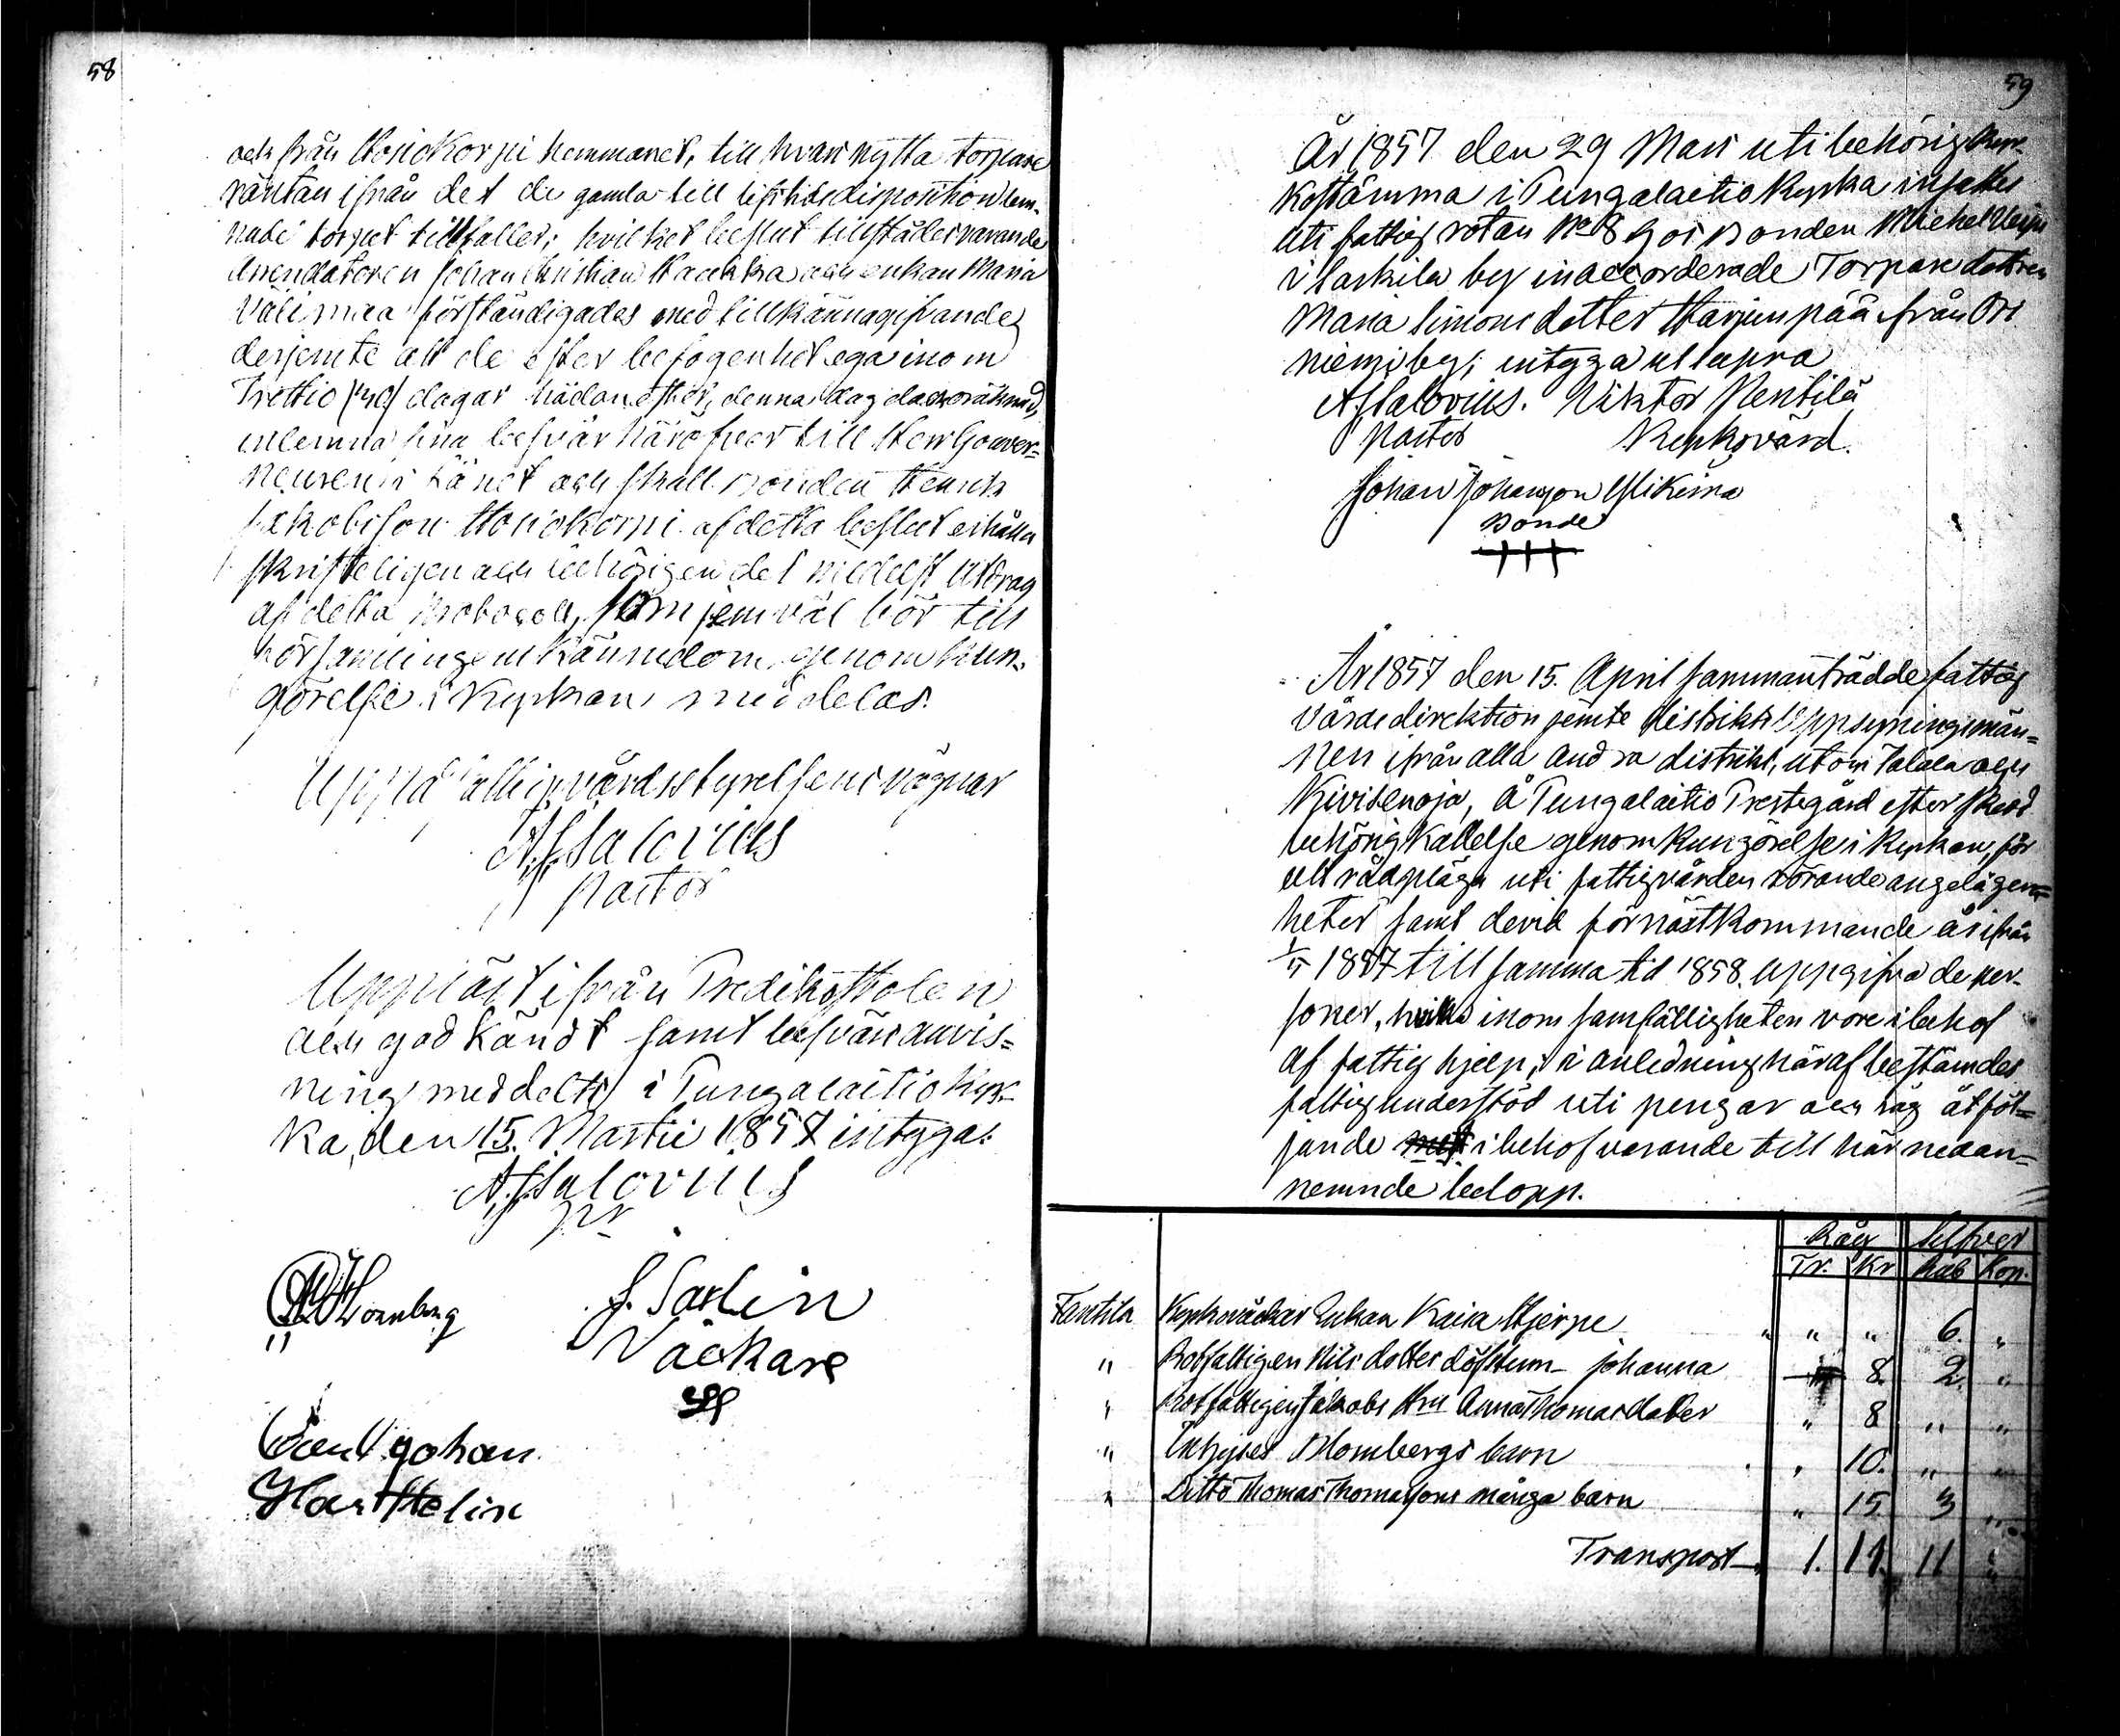 58
och från Honokorpi hemmanet, till hvars nytta torpare
räntan ifrån det de gamla till lifstids disposition lem-
nade torpet tillfaller; hvilket beslut tillstädesvarande
Arrendatoren Johan Christian Haukka och enkan Maria
Välimaa förständigades med tillkännagifvande
derjemte att de efter befogenhet ega inom
Trettio (30) dagar hädanefter, denna dag oberäknad,
inlemna sina besvär häröfver till Herr Gouver=
neuren i Länet och skall Bonden Henrik
Jakobsson Honokorpi af detta beslut erhålla
skrifteligen och behörigen del medelst utdrag
af detta Protocoll, som jemväl bör till
församlingens kännedom genom kun-
görelse i Kyrkan meddelas.
Uppå fattigvårdsstyrelsens vägnar
A. J. Salovius
Pastor
Uppläst ifrån Predikostolen
och godkändt samt besvärsanvis=
ning meddelts i Pungalaitio Kyr-
ka, den 15. Martii 1857 intyga:
A. J. Salovius
Pr
Blomberg
J. Sarlin
Väckare
Carl Johan
Harttelin
59
År 1857 den 29 Mars uti behörig kyr-
kostämma i Pungalaitio Kyrka insattes
uti fattig rotan No 8 hos Bonden Michel
i Laskila by inaccorderade Torpare dottren
Maria Simonsdotter Harjunpää från Ori
niemi by; intyga ut supra
A. J. Salovius. Viktor Pentilä
Pastor Kyrkovärd.
Johan Johansson
Bonde
År 1857 den 15. April sammanträdde fattig
vårdsdirektion jemte distrikts uppsyningsmän=
nen ifrån alla andra distrikt, utom Talala och
Kivisenoja, å Pungalaitio Prestegård efter skedd
behörig kallelse genom kungörelse i Kyrkan, för
att rådpläga uti fattigvården rörande angelägen=
heter samt devid för nästkommande år ifrån
1/5 1857 till samma tid 1858. uppgifva de per-
soner, hvilka inom samfälligheten vore i behof
af fattig hjelp; i anledning häraf bestämdes
fattigunderstöd uti pengar och råg åt föl=
jande i behof varande till här nedan=
nemnde belopp.
Råg Silfver
Tr. Kr Rub Kop.
Tantila Kyrkoväckar Enkan Kaisa Hjerpe " " 6. "
" Rotfattigen Nils dotter döfstum Johanna 8. 2. "
" Rotfattigen Jakobs Hru Anna Thomasdotter " 8 " "
" Inhyses Blombergs barn " 10. " "
" Ditto Thomas Thomassons många barn " 15. 3 "
Transport 1. 11. 11 "